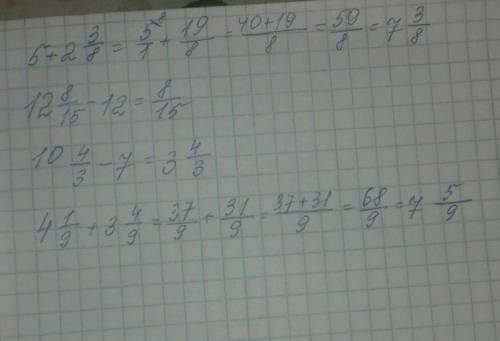 5+2 3/8 = 5⁸/1 + 19/8 = 40+19/8 = 59/8 = 7 3/8
12 8/15 - 12 = 8/15
10 4/3 - 7 = 3 4/3
4 1/9 + 3 4/9 = 37/9 + 31/9 = 37+31/9 = 68/9 = 7 5/9